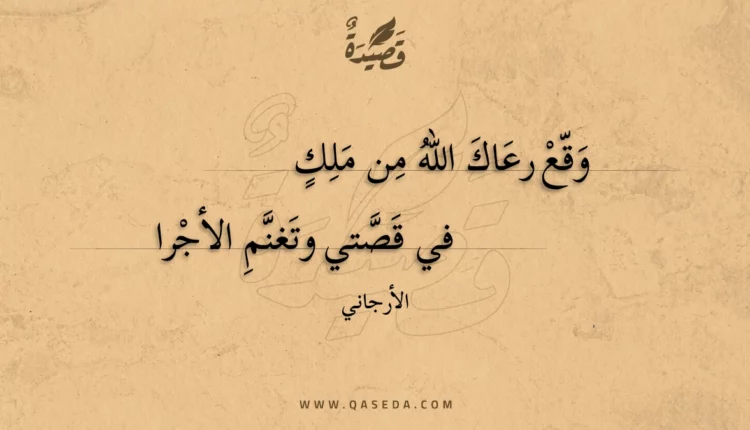 قَصِيدَةٌ
وَقّعْ رعَاكَ اللهُ مِن مَلِكٍ
في قَصَّتي وتَغنَّمِ الأجْرا
الأرجاني
WWW.QASEDA.COM